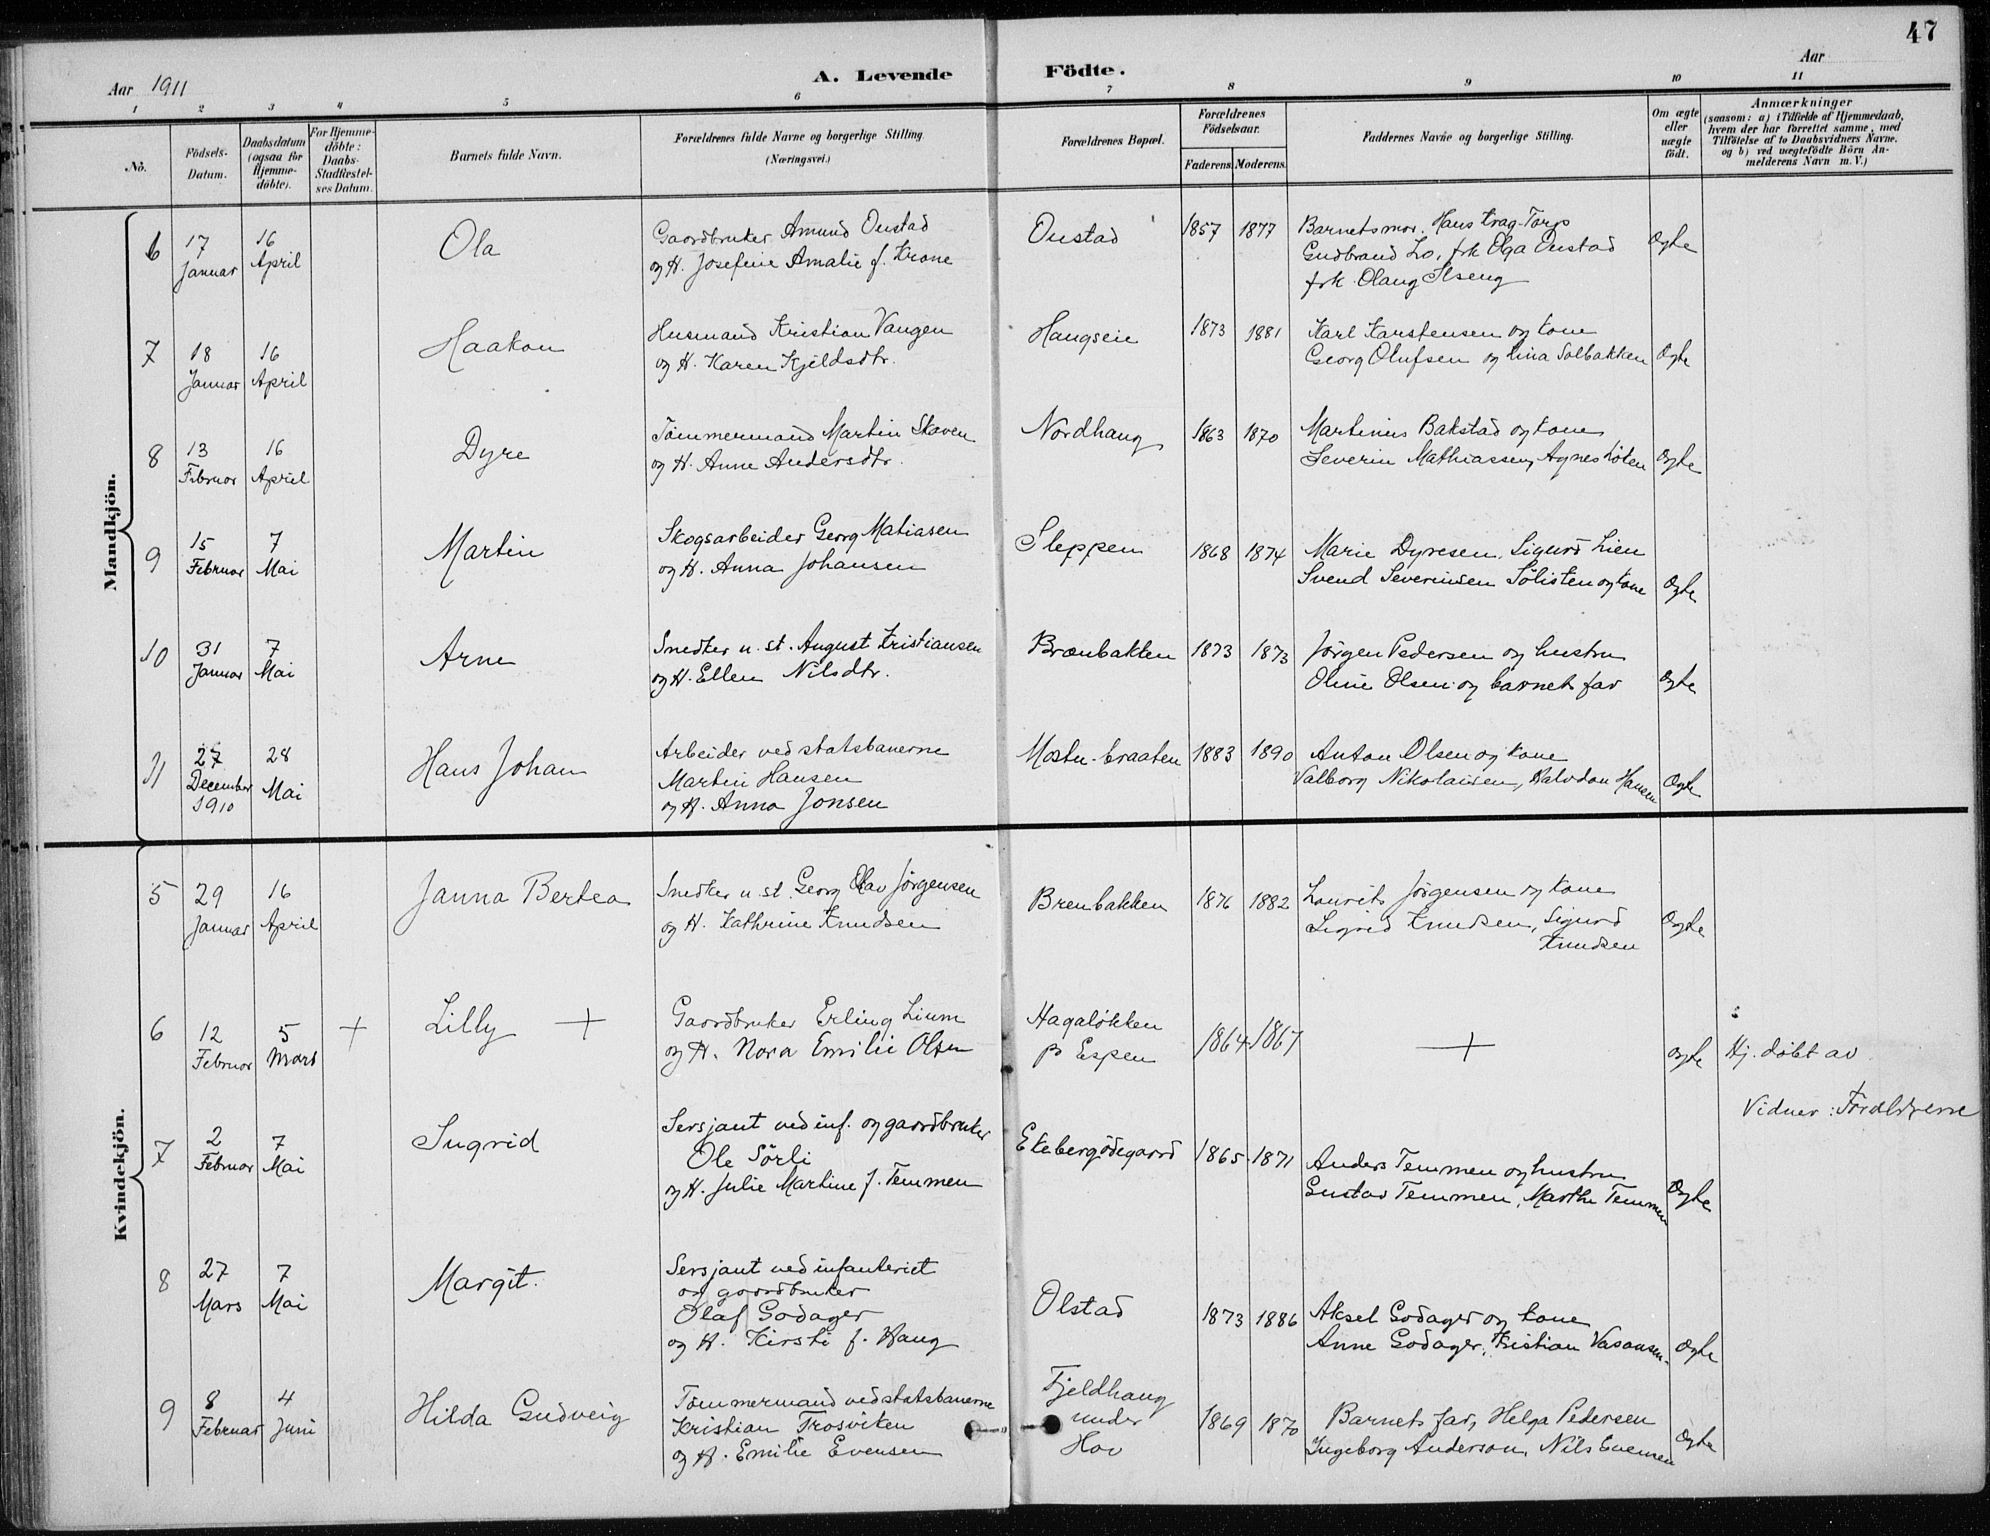 47
Aar 1911
A. Levende Födte.
Aar
1 2 3 4 5 6 7 8 9 10 11
No.
Födsels-Datum.
Daabsdatum (ogsaa for Hjemme-döbte).
For Hjemme-döbte: Daabs-Stadfæstel-ses Datum.
Barnets fulde Navn.
Forældrenes fulde Navne og borgerlige Stilling.
(Næringsvei.)
Forældrenes Bopæl.
Forældrenes Födselsaar.
Faderens. Moderens.
Faddernes Navne og borgerlige Stilling.
Om ægte eller uægte födt.
Anmærkninger
(saasom: a) i Tilfælde af Hjemmedaab, hvem der har forrettet samme, med Tilföielse af to Daabsvidners Navne. og b) ved uægtefödte Börn An-melderens Navn m. V.)
Mandkjön.
6 17 Januar 16 April Ola
Gaardbruker Amund Oustad
og H. Josefine Amalie f. Krone
Oustad 1857 1877
Barnets mor. Hans Krag-Torp
Gudbrand Lo, frk Olga Oustad
frk. Olaug Ilseng
Ægte
7 18 Januar 16 April Haakon
Husmand Kristian Vangen
og H. Karen Kjeldsdtr.
Haugseie 1873 1881
Karl Karstensen og kone
Georg Olufsen og Lina Solbakken
Ægte
8 13 Februar 16 April Dyre
Tømmermand Martin Skaven
og H. Anne Andersdtr.
Nordhaug 1863 1870
Martinius Bakstad og kone
Severin Mathiassen, Agnes Løten
Ægte
9 15 Februar 7 Mai Martin
Skogsarbeider Georg Matiasen
og H. Anna Johansen
Sleppen 1868 1874
Marie Dyresen, Sigurd Lien
Svend Severinsen Sølisten og kone
Ægte
10 31 Januar 7 Mai Arne
Snedker u. st. August Kristiansen
og H. Ellen Nilsdtr.
Brænbakken 1873 1873
Jørgen Pedersen og hustru
Oline Olsen og barnets far
Ægte
11 27 December 1910 28 Mai Hans Johan
Arbeider ved statsbanerne
Martin Hansen
og H. Anna Jonsen
Mostu-braaten 1883 1890
Anton Olsen og kone
Valborg Nikolaisen, Halvdan Hansen
Ægte
Kvindekjön.
5 29 Januar 16 April Janna Bertea
Snedker u. st. Georg Olav Jørgensen
og H. Kathrine Knudsen
Brenbakken 1876 1882
Laurits Jørgensen og kone
Sigrid Knudsen, Sigurd
Knudsen
Ægte
6 12 Februar 5 Mars + Lilly +
Gaardbruker Erling Lium
og H. Nora Emilie Olsen
Hagaløkken
p Espen
1864 1867
+
ægte
Hj. døbt av
Vidner: Forældrene
7 2 Februar 7 Mai Ingrid
Sersjant ved inf. og gaardbruker
Ole Sörli
og H. Julie Martine f. Temmen
Ekebergødegaard 1865 1871
Anders Temmen og hustru
Gustav Temmen, Marthe Temmen
Ægte
8 27 Mars 7 Mai Margit.
Sersjant ved infanteriet
og gaardbruker
Olaf Godager
og H. Kirsti f. Haug
Olstad 1873 1886
Aksel Godager og kone
Anne Godager, Kristian
Ægte
9 8 Februar 4 Juni Hilda Gudveig
Tømmermand ved statsbanerne
Kristian Trosviken
og H. Emilie Evensen
Fjeldhaug
under
Hov
1869 1870
Barnets far, Helga Pedersen
Ingeborg Anderson, Nils Evensen
Ægte